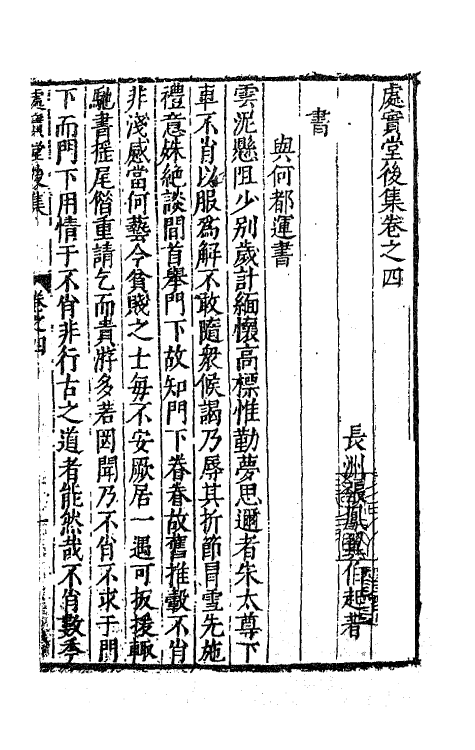 處實堂後集卷之四
長州張鳳翼伯起著
書
與何都運書
雲泥懸阻少别歲計緬懷高標惟勤夢思邇者朱太尊下
車不肖以服爲解不敢隨衆候謁乃辱其折節冐雪先施
禮意殊絶談間首舉門下故知門下眷眷故舊推轂不肖
非淺感當何藝今貧賤之士每不安厥居一遇可扳援輙
馳書揺尾僭重請乞而貴游多若罔聞乃不肖不求于門
下而門下用情于不肖非行古之道者能然哉不肖數季
處實堂後集
卷之四